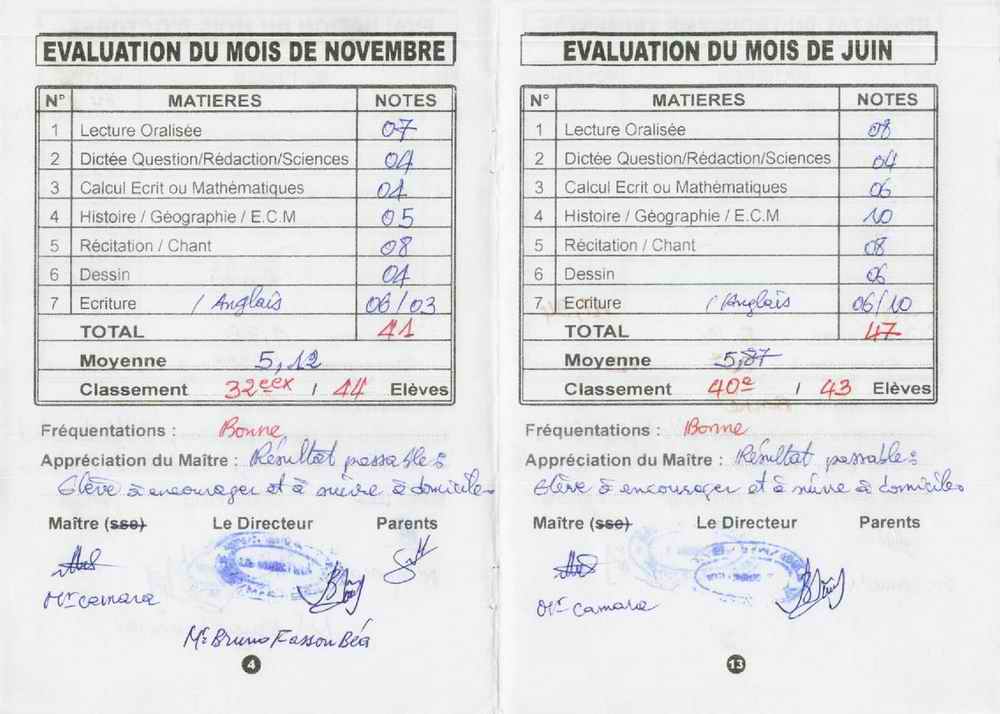 EVALUATION DU MOIS DE NOVEMBRE
N° MATIERES NOTES
1 Lecture Oralisée 07
2 Dictée Question/Rédaction/Sciences 04
3 Calcul Ecrit ou Mathématiques 04
4 Histoire / Géographie / E.C.M 05
5 Récitation / Chant 08
6 Dessin 04
7 Ecriture / Anglais 06/03
TOTAL 41
Moyenne 5,12
Classement 32eex / 44 Elèves
Fréquentations : Bonne
Appréciation du Maître : Résultat passable :
Elève à encourager et à suivre à domicile.
Maître (sse) Le Directeur Parents
Mr camara
Mr Bruno Fasson Béa
4
EVALUATION DU MOIS DE JUIN
N° MATIERES NOTES
1 Lecture Oralisée 08
2 Dictée Question/Rédaction/Sciences 04
3 Calcul Ecrit ou Mathématiques 06
4 Histoire / Géographie / E.C.M 10
5 Récitation / Chant 08
6 Dessin 06
7 Ecriture / Anglais 06/10
TOTAL 47
Moyenne 5,87
Classement 40e / 43 Elèves
Fréquentations : Bonne
Appréciation du Maître : Résultat passable :
Elève à encourager et à suivre à domicile.
Maître (sse) Le Directeur Parents
Mr camara
13